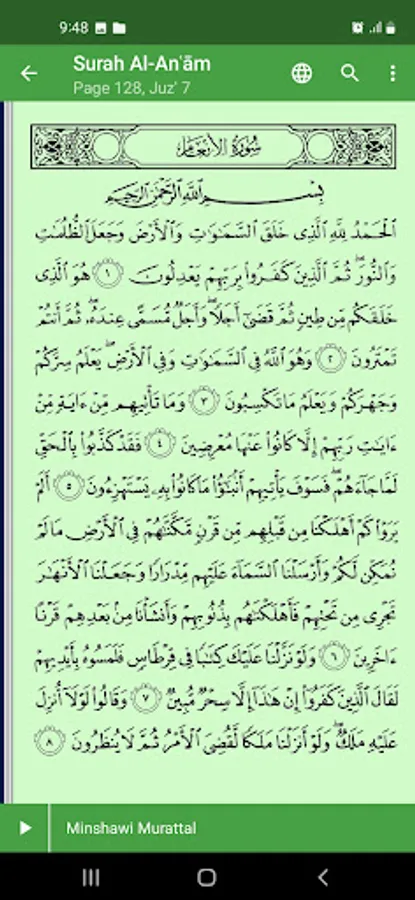 9:48
Surah Al-An'ām
Page 128, Juz' 7
سُورَةُ الأَنْعَامِ
بِسْمِ اللَّهِ الرَّحْمَٰنِ الرَّحِيمِ
الْحَمْدُ لِلَّهِ الَّذِي خَلَقَ السَّمَاوَاتِ وَالْأَرْضَ وَجَعَلَ الظُّلُمَاتِ
وَالنُّورَ ۖ ثُمَّ الَّذِينَ كَفَرُوا بِرَبِّهِمْ يَعْدِلُونَ ١ هُوَ الَّذِي
خَلَقَكُم مِّن طِينٍ ثُمَّ قَضَىٰ أَجَلًا ۖ وَأَجَلٌ مُّسَمًّى عِندَهُ ۖ ثُمَّ أَنتُمْ
تَمْتَرُونَ ٢ وَهُوَ اللَّهُ فِي السَّمَاوَاتِ وَفِي الْأَرْضِ ۖ يَعْلَمُ سِرَّكُمْ
وَجَهْرَكُمْ وَيَعْلَمُ مَا تَكْسِبُونَ ٣ وَمَا تَأْتِيهِم مِّنْ ءَايَةٍ مِّنْ
ءَايَاتِ رَبِّهِمْ إِلَّا كَانُوا عَنْهَا مُعْرِضِينَ ٤ فَقَدْ كَذَّبُوا بِالْحَقِّ
لَمَّا جَاءَهُمْ ۖ فَسَوْفَ يَأْتِيهِمْ أَنبَٰٓؤُا مَا كَانُوا بِهِ يَسْتَهْزِءُونَ ٥ أَلَمْ
يَرَوْا كَمْ أَهْلَكْنَا مِن قَبْلِهِم مِّن قَرْنٍ مَّكَّنَّاهُمْ فِي الْأَرْضِ مَا لَمْ
نُمَكِّن لَّكُمْ وَأَرْسَلْنَا السَّمَاءَ عَلَيْهِم مِّدْرَارًا وَجَعَلْنَا الْأَنْهَارَ
تَجْرِي مِن تَحْتِهِمْ فَأَهْلَكْنَاهُم بِذُنُوبِهِمْ وَأَنشَأْنَا مِن بَعْدِهِمْ قَرْنًا
ءَاخَرِينَ ٦ وَلَوْ نَزَّلْنَا عَلَيْكَ كِتَابًا فِي قِرْطَاسٍ فَلَمَسُوهُ بِأَيْدِيهِمْ
لَقَالَ الَّذِينَ كَفَرُوا إِنْ هَٰذَا إِلَّا سِحْرٌ مُّبِينٌ ٧ وَقَالُوا لَوْلَا أُنزِلَ
عَلَيْهِ مَلَكٌ ۖ وَلَوْ أَنزَلْنَا مَلَكًا لَّقُضِيَ الْأَمْرُ ثُمَّ لَا يُنظَرُونَ ٨
Minshawi Murattal